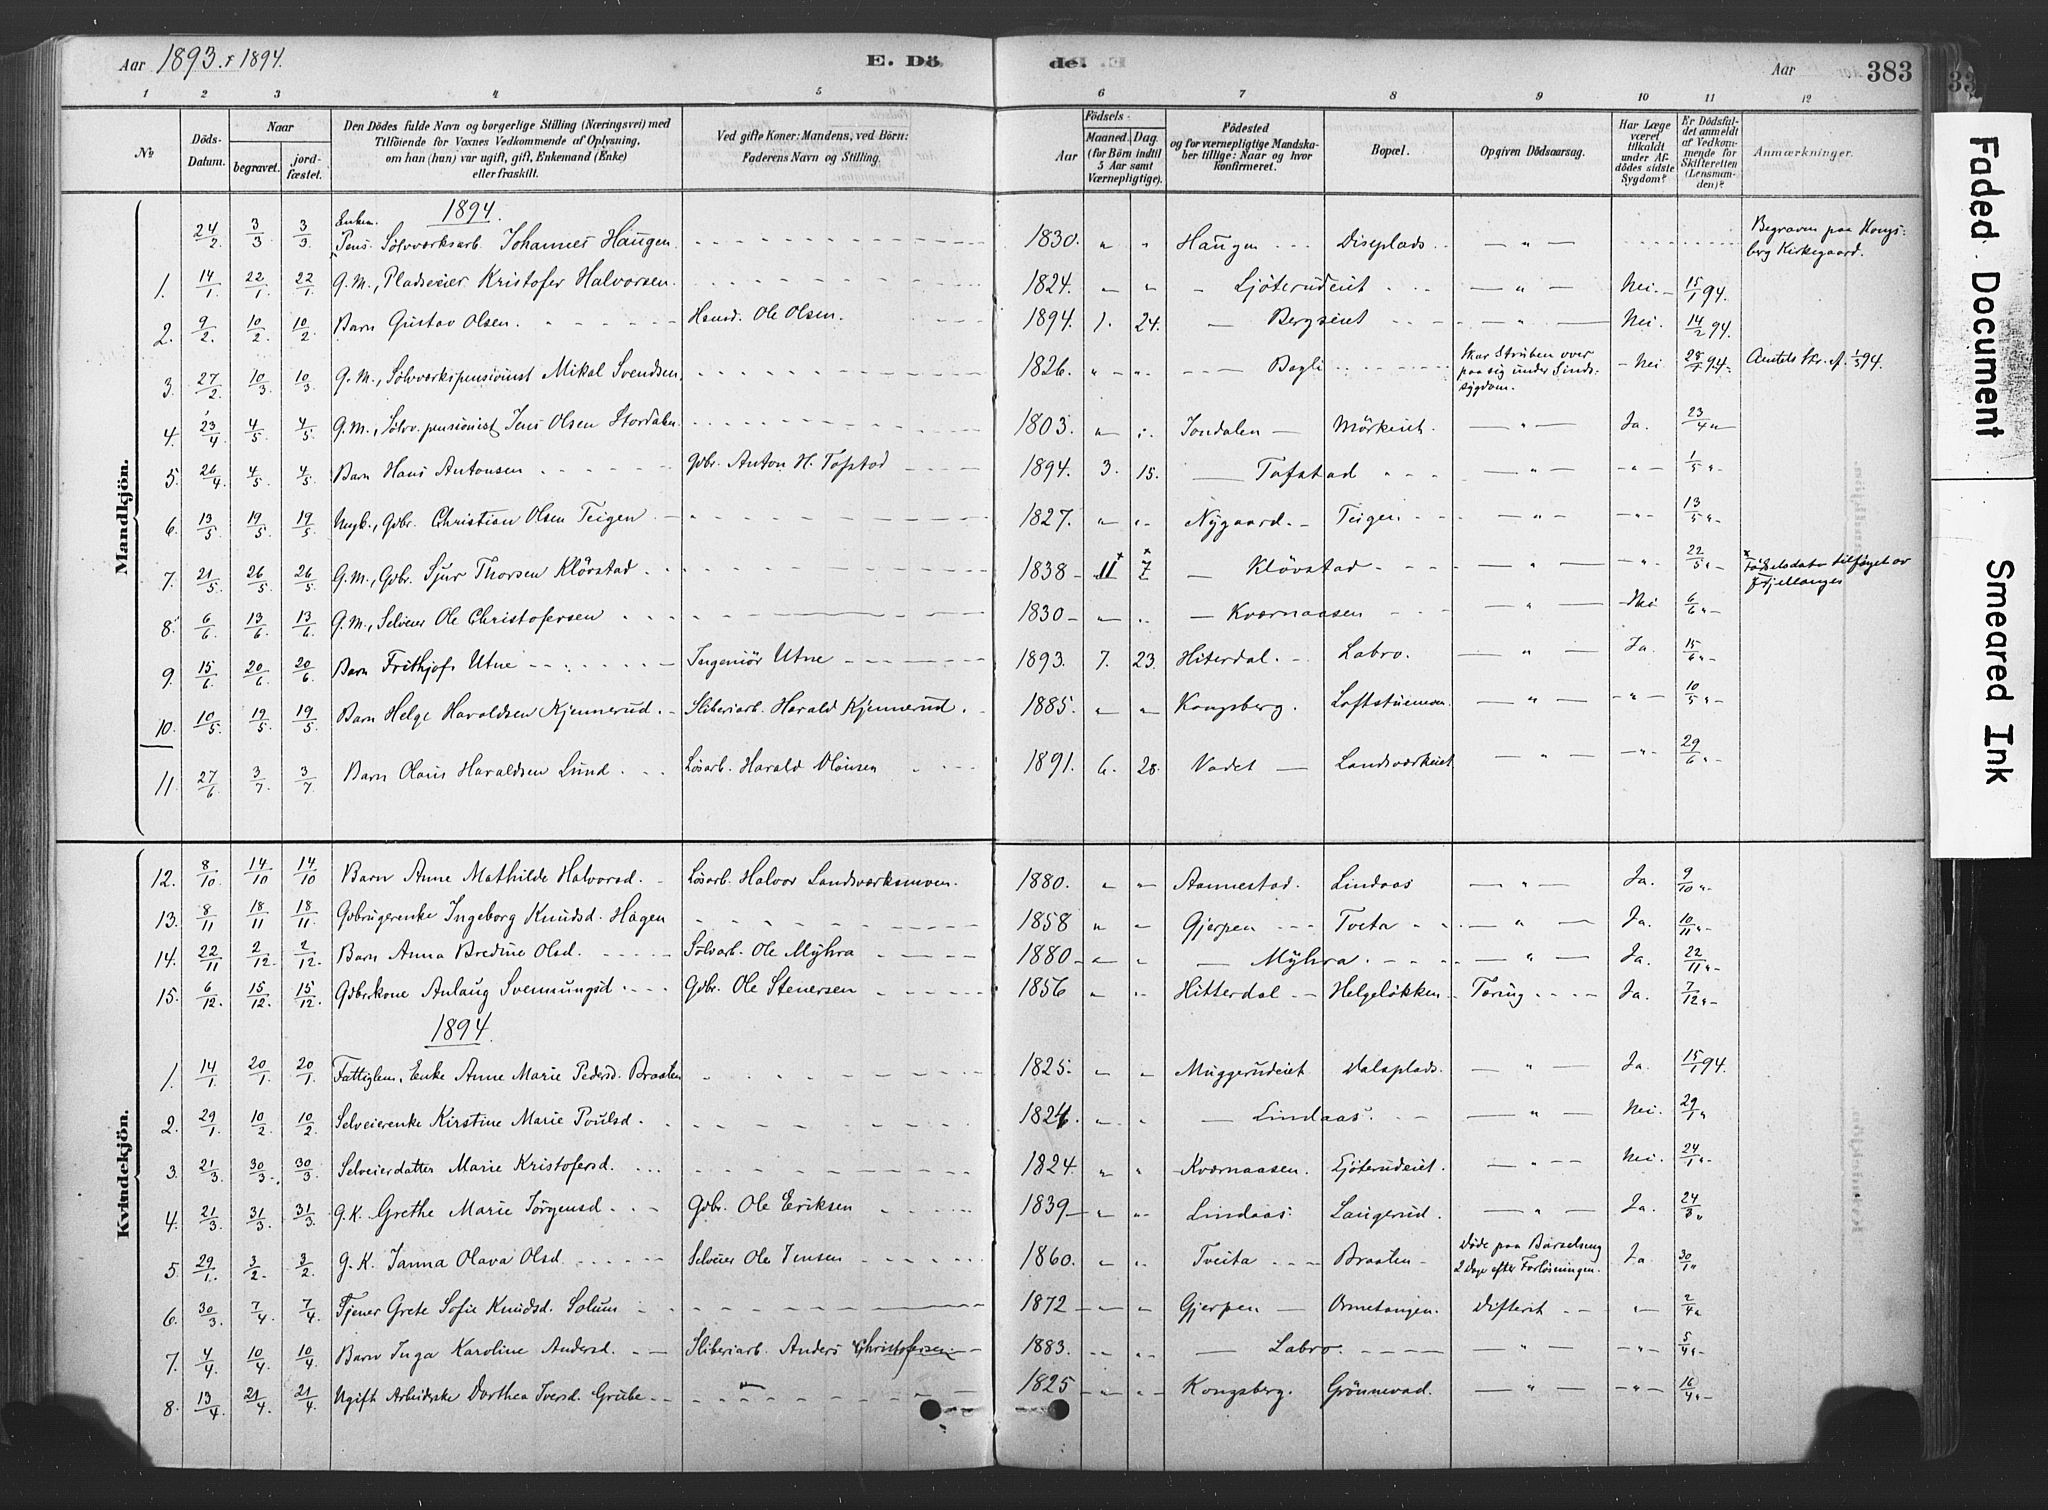 Aar 1893 & 1894. E. Dö de. Aar 383
1 2 3 4 5 6 7 8 9 10 11 12
No Döds-Datum. Naar begravet. jord-fæstet. Den Dödes fulde Navn og borgerlige Stilling (Næringsvei) med Tilföiende for Voxnes Vedkommende af Oplysning, om han (hun) var ugift, gift, Enkemand (Enke) eller fraskilt. Ved gifte Koner: Mandens, ved Börn: Faderens Navn og Stilling. Födsels- Aar Maaned. Dag. (for Börn indtil 5 Aar samt Værnepligtige). Födested og for værnepligtige Mandskaber tillige: Naar og hvor konfirmeret. Bopæl. Opgiven Dödsaarsag. Har Læge været tilkaldt under Afdödes sidste Sygdom? Er Dödsfaldet anmeldt af Vedkommende for Skifteretten (Lensmanden)? Anmærkninger.
Mandkjön.
1894.
24/2 3/3 3/3 Enkem. Pens. Sølvverksarb. Johannes Haugen 1830. " " Haugen Diseplads " Begraven paa Kongsberg Kirkegaard.
1. 14/1 22/1 22/1 G.M., Pladseier Kristofer Halvorsen 1824. " " Ljöterudeiet " Nei. 15/1 94.
2. 9/2 10/2 10/2 Barn Gustav Olsen Husmd. Ole Olsen. 1894. 1. 24. Bergseiet " Nei. 14/2 94.
3. 27/2 10/3 10/3 G.M., Sølvverkspensionist Mikal Svendsen 1826. " " Bogli Skar Struben over paa sig under Sindssygdom. Nei. 28/2 94. Amtets Skr. af 1/3 94.
4. 23/4 4/5 4/5 G.M., Sølvv.pensionist Jens Olsen Stordalen 1803. " " Jondalen Mörkeiet " Ja. 23/4 "
5. 26/4 4/5 4/5 Barn Hans Antonsen Gbr. Anton H. Tofstad 1894. 3. 15. Tofstad " " 1/5 "
6. 13/5 19/5 19/5 Ungk., Gbr. Christian Olsen Teigen 1827. " " Nygaard. Teigen " " 13/5 "
7. 21/5 26/5 26/5 G.M., Gbr. Sjur Thorsen Klövstad 1838 11 7 Klövstad " " 22/5 " x Fødselsdato tilføiet av
8. 6/6 13/6 13/6 G.M., Selveier Ole Christofersen 1830 " " Kværnaasen " Nei 6/6 "
9. 15/6 20/6 20/6 Barn Frithjof Utne Ingeniör Utne 1893. 7. 23. Hiterdal. Labro. " Ja. 15/6 "
10. 10/5 19/5 19/5 Barn Helge Haraldsen Kjennerud. Sliberiarb. Harald Kjennerud. 1885. " " Kongsberg. Loftstuemoen. " " 10/5 "
11. 27/6 3/7 3/7 Barn Olaus Haraldsen Lund Løsarb. Harald Olausen 1891. 6. 28. Vadet Landsværkeiet " " 29/6 "
Kvindekjön.
12. 8/10 14/10 14/10 Barn Anne Mathilde Halvorsd. Løsarb. Halvor Landsværksmoen. 1880. " " Aannestad. Lindaas " Ja. 9/10 "
13. 8/11 18/11 18/11 Gbrugerenke Ingeborg Knudsd. Hagen 1858 " " Gjerpen Tveta " Ja. 10/11 "
14. 22/11 2/12 2/12 Barn Anna Bredine Olsd. Sølvarb. Ole Myhra 1880 " " Myhra " Ja. 22/11 "
15. 6/12 15/12 15/12 Gbrkone Anlaug Svennungsd Gbr. Ole Stenersen 1856 " " Hitterdal Helgeløkken Tæring Ja. 7/12 "
1894
1. 14/1 20/1 20/1 Fattiglem, Enke Anne Marie Pedersd. Braaten 1825. " " Muggerudeiet Dalsplads. " Ja. 15/1 94.
2. 29/1 10/2 10/2 Selveierenke Kirstine Marie Poulsd. 1824 " " Lindaas. " Nei. 29/1 "
3. 21/3 30/3 30/3 Selveierdatter Marie Kristofersd. 1824. " " Kværnaasen. Ljöterudeiet. " Nei. 24/1 "
4. 21/3 31/3 31/3 G.K. Grethe Marie Jörgensd Gbr. Ole Eriksen 1839 " " Lindaas. Langerud. " Ja. 24/3 "
5. 29/1 3/2 3/2 G.K. Janna Olava Olsd Selveier Ole Jensen 1860. " " Tveita Braaten Döde paa Barselseng 2 Dage efter Forløsningen. Ja 30/1 "
6. 30/3 7/4 7/4 Tjener Grete Sofie Knudsd. Solum 1872 " " Gjerpen Ormetangen. Difterit " 2/4 "
7. 4/4 10/4 10/4 Barn Inga Karoline Andersd. Sliberiarb. Anders Christofersen 1883. " " Labro " " 5/4 "
8. 13/4 21/4 21/4 Ugift Arbeiderske Dorthea Iversd. Grube " 1825 " " Kongsberg. Grönnevad. " " 16/4 "
Faded Document
Smeared Ink